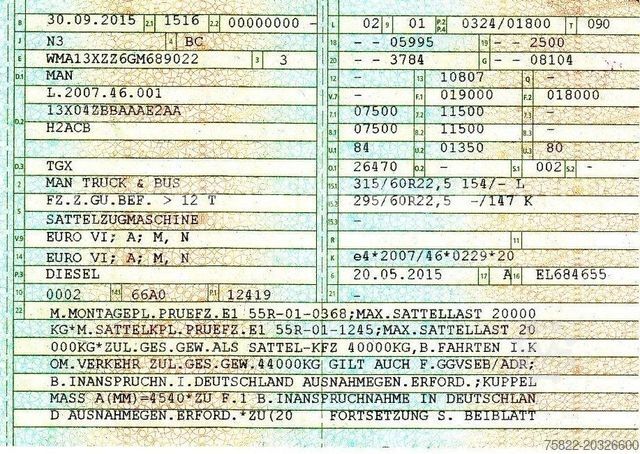 B 30.09.2015 2.1 1516 2.2 00000000 - L 02 9 01 P.2 P.4 0324/01800 T 090
J N3 4 BC 18 - - 05995 19 - - 2500
E WMA13XZZ6GM689022 3 3 20 - - 3784 G - - 08104
D.1 MAN 12 - 13 10807 Q -
L.2007.46.001 V.7 - F.1 019000 F.2 018000
D.2 13X04ZBBAAAE2AA 7.1 07500 7.2 11500 7.3 -
H2ACB 8.1 07500 8.2 11500 8.3 -
U.1 84 U.2 01350 U.3 80
D.3 TGX O.1 26470 O.2 - S.1 002 S.2 -
2 MAN TRUCK & BUS 15.1 315/60R22,5 154/- L
5 FZ.Z.GU.BEF. > 12 T 15.2 295/60R22,5 -/147 K
SATTELZUGMASCHINE 15.3 -
V.9 EURO VI; A; M, N R 11
14 EURO VI; A; M, N K e4*2007/46*0229*20
P.3 DIESEL 6 20.05.2015 17 A 16 EL684655
10 0002 14.1 66A0 P.1 12419 21 -
22 M.MONTAGEPL.PRUEFZ.E1 55R-01-0368;MAX.SATTELLAST 20000
KG*M.SATTELKPL.PRUEFZ.E1 55R-01-1245;MAX.SATTELLAST 20
000KG*ZUL.GES.GEW.ALS SATTEL-KFZ 40000KG,B.FAHRTEN I.K
OM.VERKEHR ZUL.GES.GEW.44000KG GILT AUCH F.GGVSEB/ADR;
B.INANSPRUCHN.I.DEUTSCHLAND AUSNAHMEGEN.ERFORD.;KUPPEL
MASS A(MM)=4540*ZU F.1 B.INANSPRUCHNAHME IN DEUTSCHLAN
D AUSNAHMEGEN.ERFORD.*ZU(20 FORTSETZUNG S. BEIBLATT
75822-20326600